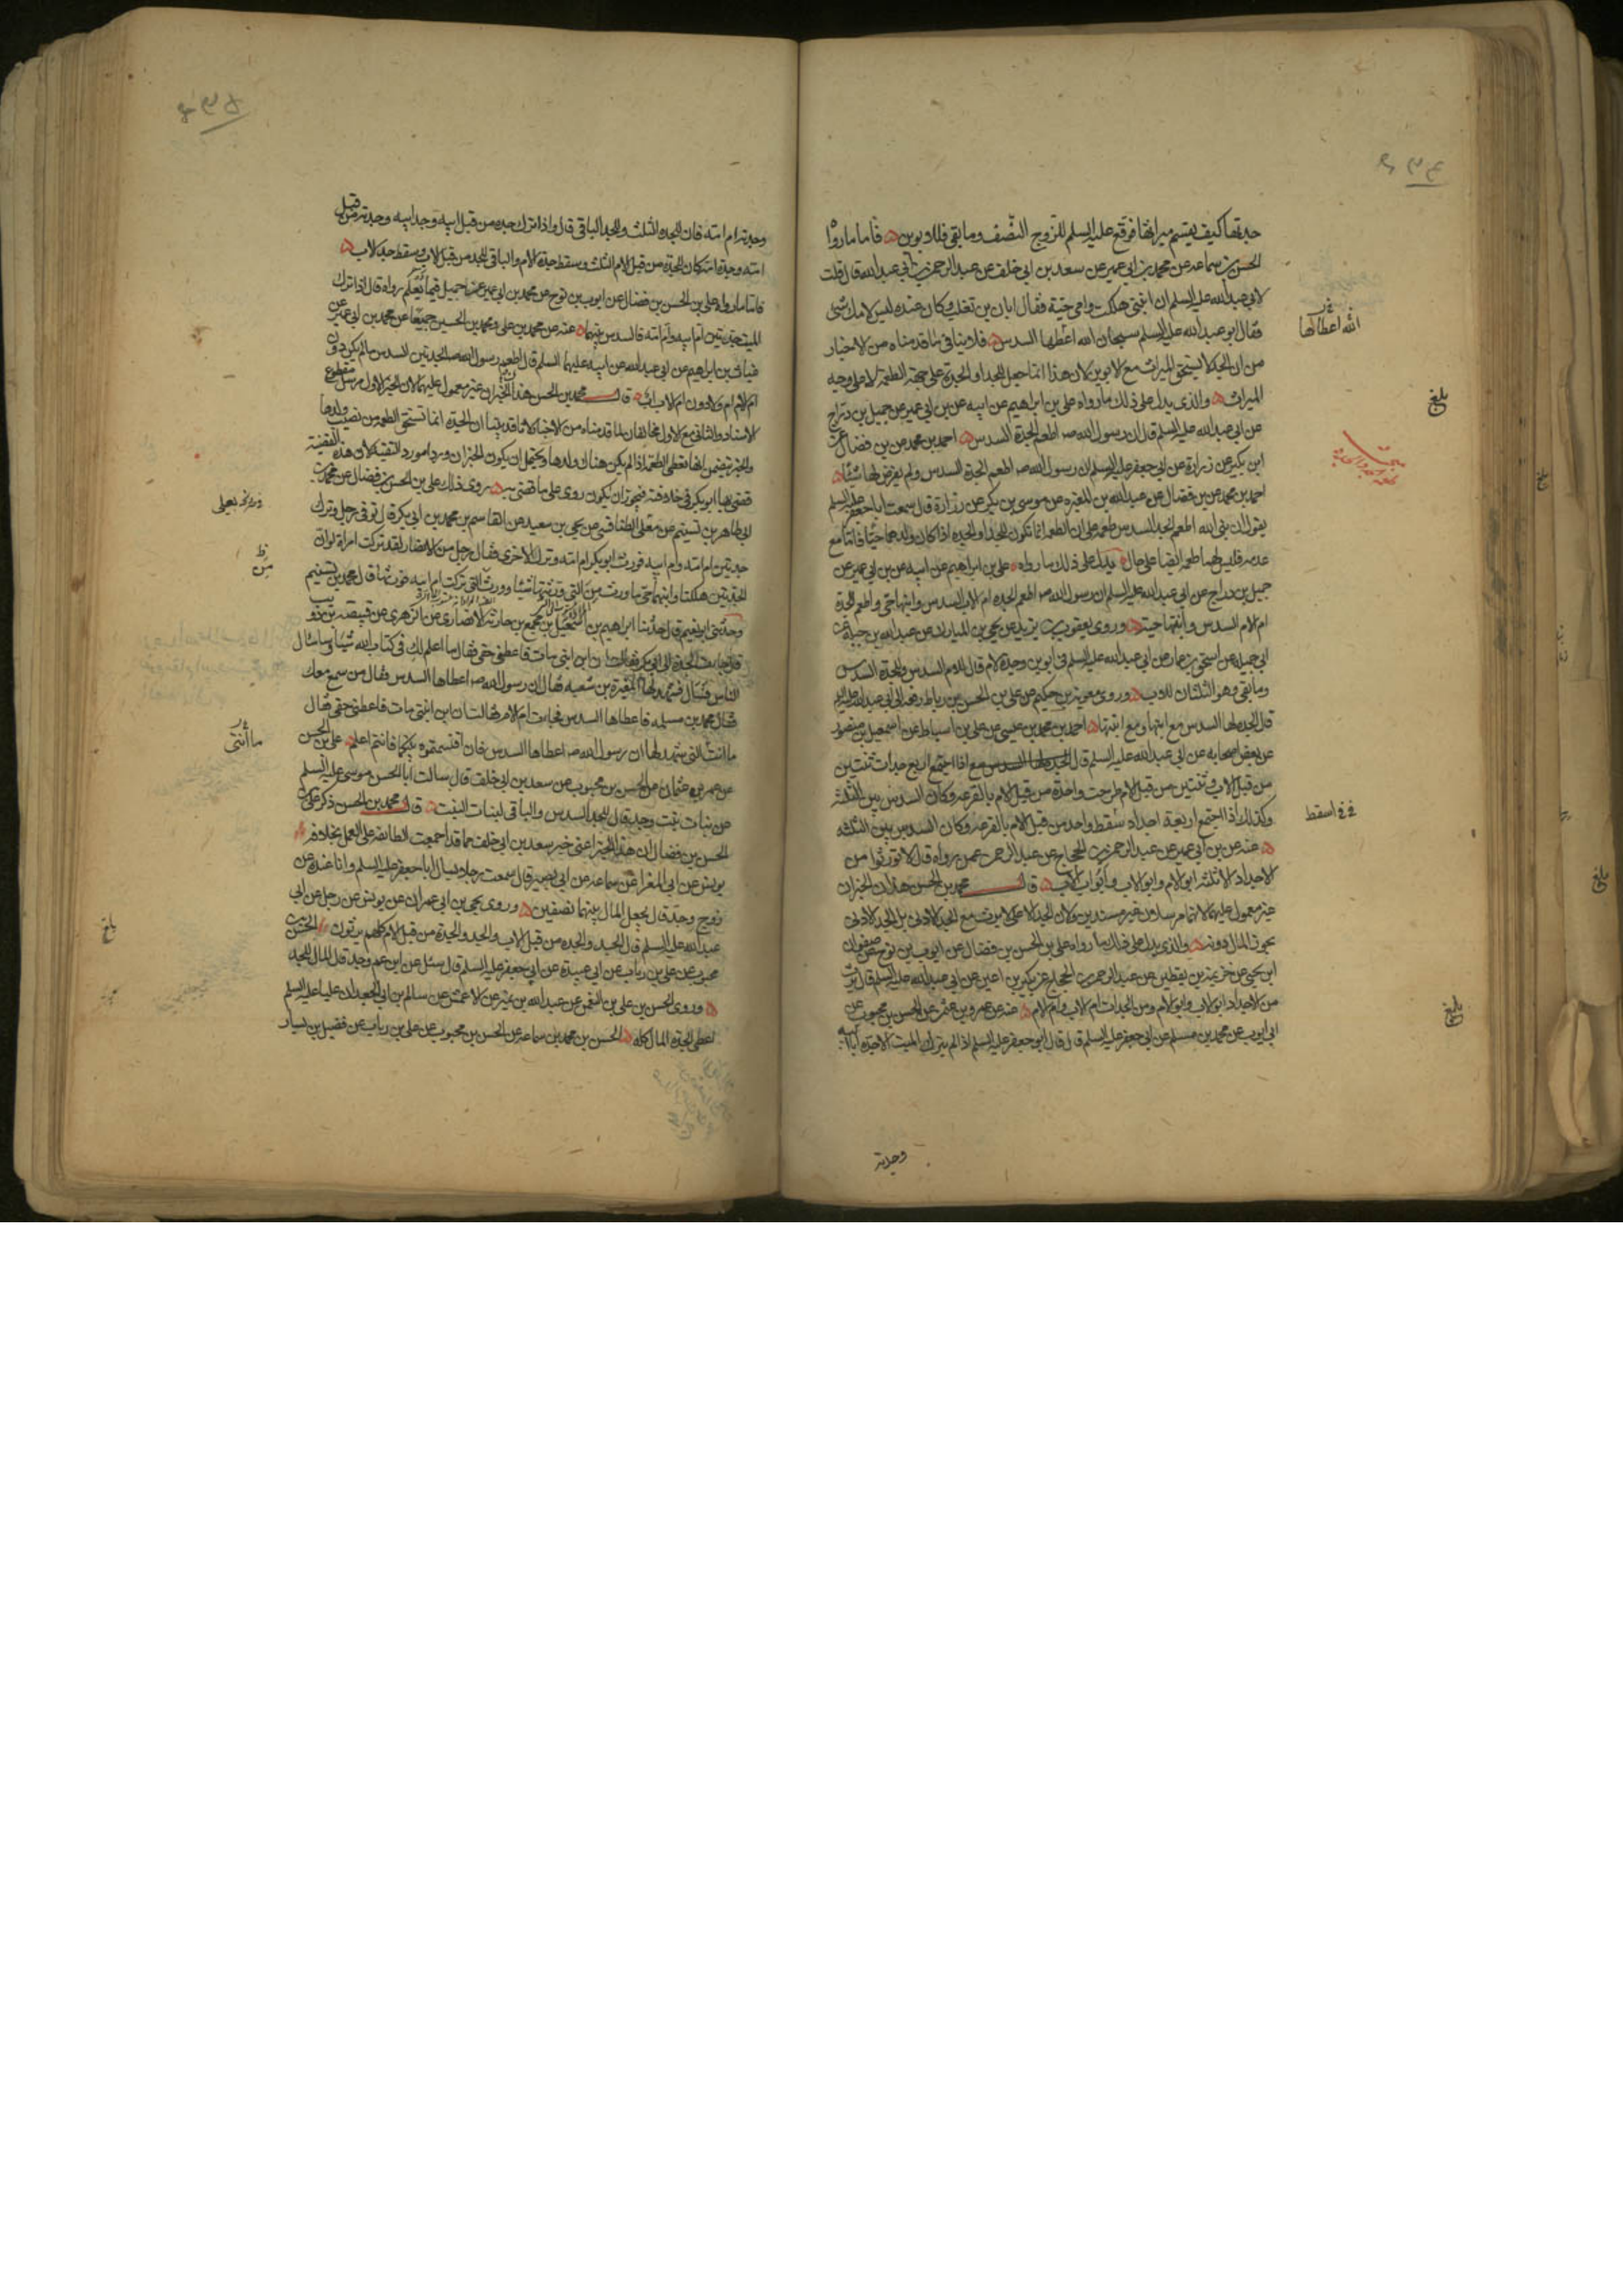 جدتها كيف يقسم ميراثها فوقع عليه السلم للزوج النصف وما بقي فللابوين فاما ما رواه
الحسن بن سماعه عن محمد بن ابي عمير عن سعد بن ابي خلف عن عبد الرحمن بن ابي عبد الله قال قلت
لابي عبد الله عليه السلم ان ابنتي هلكت وامي حية فقال ابان بن تغلب وكان عنده ليس لامك شئ
فقال ابو عبد الله عليه السلم سبحان الله اعطها السدس فلا ينافي ما قدمناه من الاخبار
من ان الجد لا يستحق الميراث مع الابوين لان هذا انما جعل للجد او الجدة على جهة الطعمة لا على وجه
الميراث والذي يدل على ذلك ما رواه علي بن ابراهيم عن ابيه عن بن ابي عمير عن جميل بن دراج
عن ابي عبد الله عليه السلم قال ان رسول الله صـ اطعم الجدة السدس احمد بن محمد عن بن فضال عن
ابن بكير عن زرارة عن ابي جعفر عليه السلم ان رسول الله صـ اطعم الجدة السدس ولم يفرض لها شيئا
احمد بن محمد عن بن فضال عن عبد الله بن المغيره عن موسى بن بكر عن زرارة قال سمعت ابا جعفر عليه السلم
يقول ان نبي الله اطعم الجد السدس طعمه على ان الطعمه انما تكون للجد او الجده اذا كان ولدهما حيا فاما مع
عدمه فليس لهما طعمه ايضا على حال يدل على ذلك ما رواه علي بن ابراهيم عن ابيه عن بن ابي عمير عن
جميل بن دراج عن ابي عبد الله عليه السلم ان رسول الله صـ اطعم الجده ام الاب السدس وابنها حي واطعم الجدة
ام الام السدس وابنتها حية وروى يعقوب بن يزيد عن يحيى بن المبارك عن عبد الله بن جبلة عن
ابي جميله عن اسحق بن عمار عن ابي عبد الله عليه السلم في ابوين وجدة لام قال للام السدس وللجدة السدس
وما بقي وهو الثلثان للاب وروى معوية بن حكيم عن علي بن الحسن بن رباط رفعه الى ابي عبد الله عليه السلم
قال الجده لها السدس مع ابنها ومع ابنتها احمد بن محمد بن عيسى عن علي بن اسباط عن اسمعيل بن منصور
عن بعض اصحابه عن ابي عبد الله عليه السلم قال اذا اجتمع اربع جدات ثنتين
من قبل الاب وثنتين من قبل الام طرحت واحدة من قبل الام بالقرعه وكان السدس بين الثلثة
وكذلك اذا اجتمع اربعة اجداد سقط واحد من قبل الام بالقرعه وكان السدس بين الثلثه
عنه عن بن ابي عمير عن عبد الرحمن بن الحجاج عن عبد الرحمن عمن رواه قال لا تورثوا من
الاجداد الا ثلثه ابو الام وابو الاب وابو اب الاب قال محمد بن الحسن هذان الخبران
غير معمول عليهما لانهما مرسلان غير مسندين ولان الجد الاعلى لا يرث مع الجد الادنى بل الجد الادنى
يحوز المال دونه والذي يدل على ذلك ما رواه علي بن الحسن بن فضال عن ايوب بن نوح عن صفوان
ابن يحيى عن خزيمه بن يقطين عن عبد الرحمن بن الحجاج عن بكير بن اعين عن ابي عبد الله عليه السلم قال يرث
من الاجداد ابو الاب وابو الام ومن الجدات ام الاب وام الام عنه عن عمرو بن عثمن عن الحسن بن محبوب عن
ابي ايوب عن محمد بن مسلم عن ابي جعفر عليه السلم قال قال ابو جعفر عليه السلم اذا لم يترك الميت الا جده ابا ابيه
وجدته
الله اعطاها
بلغ
اسقط
بلغ
وجدته ام امه فان للجده الثلث وللجد الباقي قال واذا ترك جده من قبل ابيه وجد ابيه وجدته من قبل
امه وجدة امه كان للجدة من قبل الام الثلث وسقط جدة الام والباقي للجد من قبل الاب وسقط جد الاب
فاما ما رواه علي بن الحسن بن فضال عن ايوب بن نوح عن محمد بن ابي عمير عن جميل فيما يعلم رواه قال اذا ترك
الميت جدتين ام ابيه وام امه فالسدس بينهما عنه عن محمد بن علي ومحمد بن الحسين جميعا عن محمد بن ابي عمير عن
غياث بن ابراهيم عن ابي عبد الله عن ابيه عليهما السلم قال اطعم رسول الله صـ الجدتين السدس ما لم يكن دون
ام الام ام ولا دون ام الاب اب قال محمد بن الحسن هذان الخبران غير معمول عليهما لان الخبر الاول مرسل مقطوع
الاسناد والثاني مع الاول مخالفان لما قدمناه من الاخبار لانا قد بينا ان الجدة انما تستحق الطعمه من نصيب ولدها
والخبر تضمن انها تعطى الطعمه اذا لم يكن هناك ولدها ويحتمل ان يكون الخبران وردا مورد التقيه لان هذه القضية
قضى بها ابو بكر في خلافته فيجوز ان يكون روى على ما قضى به روى ذلك علي بن الحسن بن فضال عن محمد بن
ابي طاهر بن تسنيم عن معلى الطنافسي عن يحيى بن سعيد عن القاسم بن محمد بن ابي بكر قال توفي رجل وترك
جدتين ام امه وام ابيه فورث ابو بكر ام امه وترك الاخرى فقال رجل من الانصار لقد تركت امراة لو ان
الجدتين هلكتا وابنهما حي ما ورث من التي ورثتها شيئا وورث التي تركت ام ابيه فورثها قال محمد بن تسنيم
وحدثني ابو نعيم قال حدثنا ابراهيم بن اسمعيل بن مجمع بن حارثه الانصاري عن الزهري عن قبيصه بن ذويب
قال جاءت الجدة الى ابي بكر فقالت ان ابن ابنتي مات فاعطني حقي فقال ما اعلم لك في كتاب الله شيئا وساسال
الناس فسال فشهد لها المغيرة بن شعبه فقال ان رسول الله صـ اعطاها السدس فقال من سمع معك
فقال محمد بن مسلمه فاعطاها السدس فجاءت ام الام فقالت ان ابن ابنتي مات فاعطني حقي فقال
ما انت التي شهد لها ان رسول الله صـ اعطاها السدس فان اقتسمتموه بينكما فانتم اعلم علي بن الحسن
عن عمرو بن عثمان عن الحسن بن محبوب عن سعد بن ابي خلف قال سالت ابا الحسن موسى عليه السلم
عن بنات بنت وجد قال للجد السدس والباقي لبنات البنت قال محمد بن الحسن ذكر علي بن
الحسن بن فضال ان هذا الخبر اعني خبر سعد بن ابي خلف مما قد اجمعت الطائفه على العمل بخلافه
يونس عن ابي المغرا عن سماعه عن ابي بصير قال سمعت رجلا يسال ابا جعفر عليه السلم وانا عنده عن
زوج وجد قال يجعل المال بينهما نصفين وروى يحيى بن ابي عمران عن يونس عن رجل عن ابي
عبد الله عليه السلم قال الجد والجده من قبل الاب والجد والجدة من قبل الام كلهم يرثون الحسن بن
محبوب عن علي بن رياب عن ابي عبيدة عن ابي جعفر عليه السلم قال سئل عن ابن عم وجد قال المال للجد
وروى الحسن بن علي بن النعمن عن عبد الله بن نمير عن الاعمش عن سالم بن ابي الجعد ان عليا عليه السلم
اعطى الجدة المال كله الحسن بن محمد بن سماعه عن الحسن بن محبوب عن علي بن رياب عن فضيل بن يسار
ما انتي
بلغ